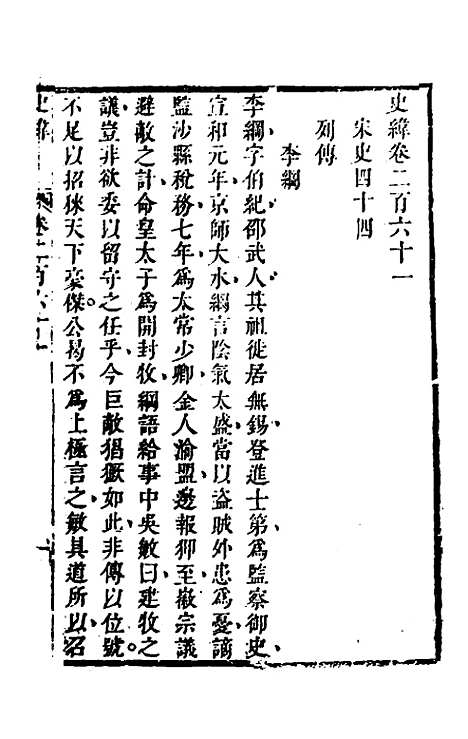 史緯卷二百六十一
宋史四十四
列傳
李綱
李綱字伯紀邵武人其祖徙居無錫登進士第爲監察御史
宣和元年京師大水綱言陰氣太盛當以盜賊外患爲憂謫
監沙縣稅務七年爲太常少卿金人渝盟邊報狎至徽宗議
避敵之計命皇太子爲開封牧綱語給事中吳敏曰建牧之
議豈非欲委以留守之任乎今巨敵猖獗如此非傳以位號
不足以招徠天下豪傑公曷不爲上極言之敏具道所以召
史緯 卷二百六十一 一